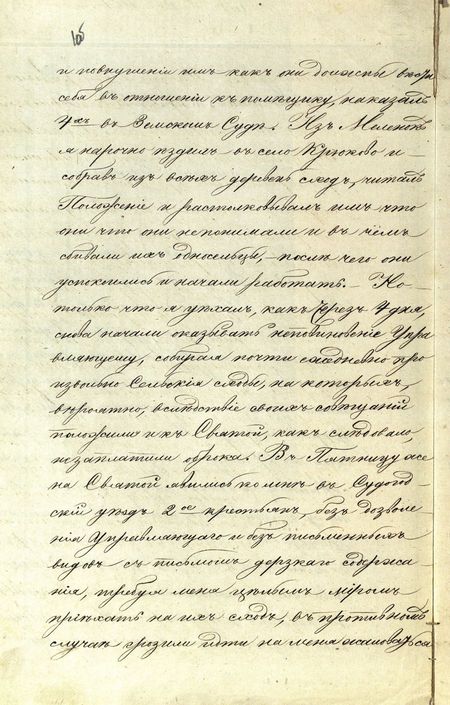 106
и повнушеніи имъ какъ они должны вести
себя въ отношеніи къ помѣщику, наказалъ
4хъ въ Земскомъ Судѣ. Изъ Меленокъ
я нарочно ѣздилъ въ село Крюково и
собравъ изъ всѣхъ деревень сходъ, читалъ
Положеніе и растолковывалъ имъ что
они что они непонимали и въ чемъ
сбивали ихъ односельцы, – послѣ чего они
успокоились и начали работать. – Но
только что я уѣхалъ, какъ чрезъ 4 дня,
снова начали оказывать неповиновеніе Упра
вляющему, собирая почти ежедневно про
извольно Сельскія сходы, на которыхъ,
вѣроятно, вслѣдствіе своихъ совѣщаній
положили и къ Святой, какъ слѣдовало,
незаплатили оброка. Въ Пятницу же
на Святой явились ко мнѣ въ Судогод-
скій уѣздъ 2ое крестьянъ, безъ дозволе
нія Управляющаго и безъ письменныхъ
видовъ съ письмомъ дерзкаго содержа-
нія, требуя меня цѣлымъ міромъ
пріѣхать на ихъ сходъ, въ противномъ
случаѣ грозили идти на меня жаловаться